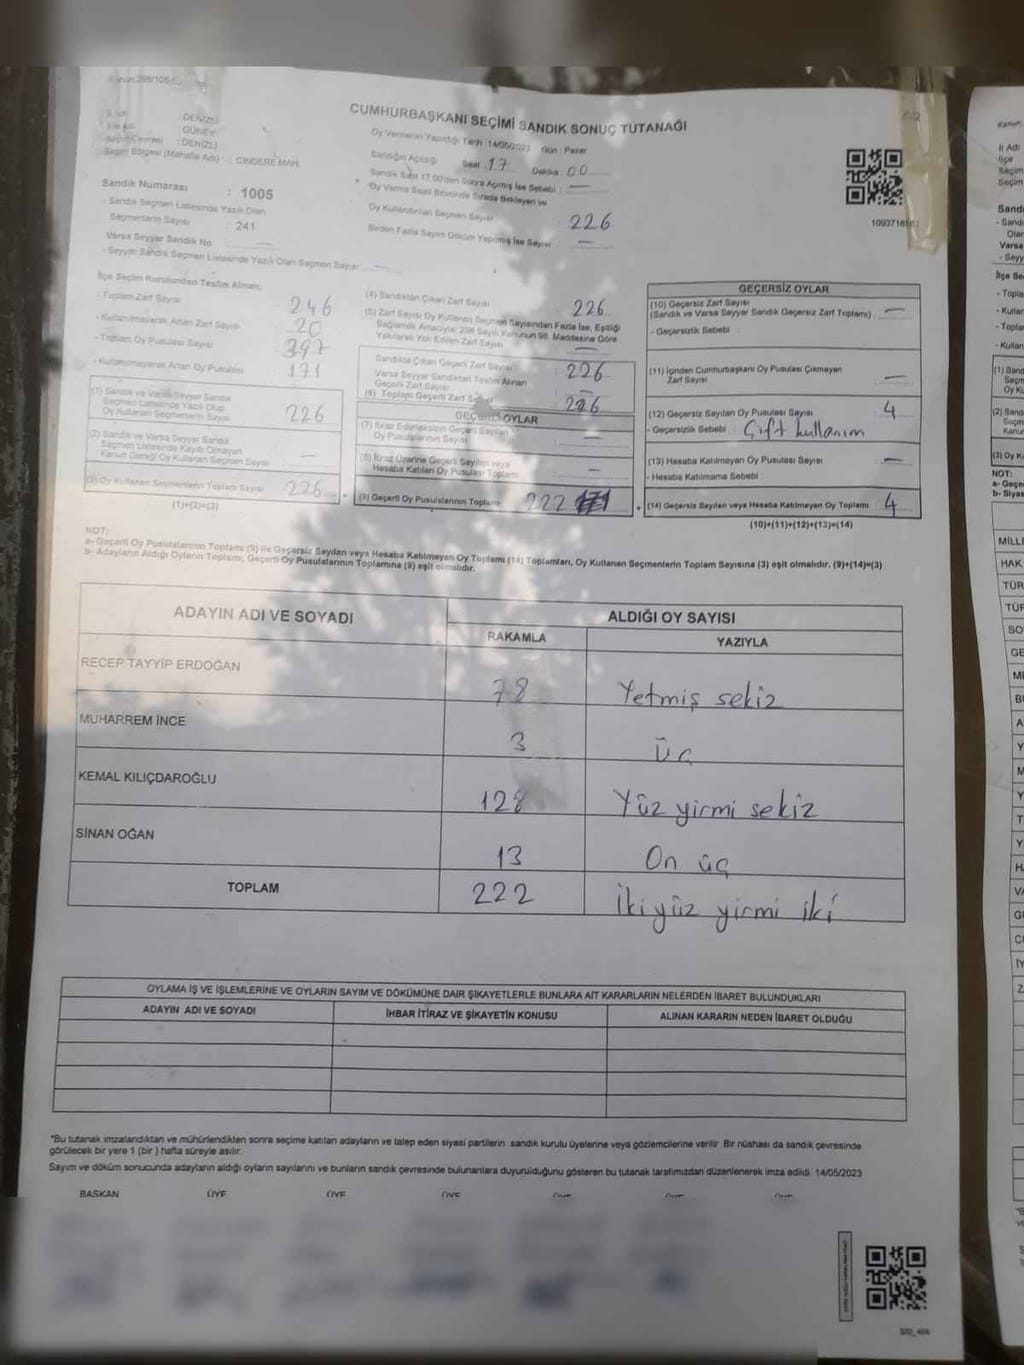 CUMHURBAŞKANI SEÇİMİ SANDIK SONUÇ TUTANAĞI
: DENİZLİ
: GÜNEY
: DENİZLİ
Seçim Bölgesi (Mahalle Adı) : CİNDERE MAH.
Oy Vermenin Yapıldığı Tarih : 14/05/2023 Gün : Pazar
Sandığın Açılışı Saat 17 Dakika 00
Sandık Saat 17:00'den Sonra Açılmış İse Sebebi : —
Oy Verme Saati Bitiminde Sırada Bekleyen ve
Oy Kullandırılan Seçmen Sayısı 226
Birden Fazla Sayım Döküm Yapılmış İse Sayısı —
Sandık Numarası : 1005
- Sandık Seçmen Listesinde Yazılı Olan
Seçmenlerin Sayısı : 241
Varsa Seyyar Sandık No —
- Seyyar Sandık Seçmen Listesinde Yazılı Olan Seçmen Sayısı —
İlçe Seçim Kurulundan Teslim Alınan;
- Toplam Zarf Sayısı 246
- Kullanılmayarak Artan Zarf Sayısı 20
- Toplam Oy Pusulası Sayısı 397
- Kullanılmayarak Artan Oy Pusulası 171
(1) Sandık ve Varsa Seyyar Sandık
Seçmen Listesinde Yazılı Olup
Oy Kullanan Seçmenlerin Sayısı 226
(2) Sandık ve Varsa Seyyar Sandık
Seçmen Listesinde Kayıtlı Olmayan
Kanun Gereği Oy Kullanan Seçmen Sayısı —
(3) Oy Kullanan Seçmenlerin Toplam Sayısı 226
(1)+(2)=(3)
(4) Sandıktan Çıkan Zarf Sayısı 226
(5) Zarf Sayısı Oy Kullanan Seçmen Sayısından Fazla İse, Eşitliği
Sağlamak Amacıyla; 298 Sayılı Kanunun 98. Maddesine Göre
Yakılarak Yok Edilen Zarf Sayısı —
Sandıkta Çıkan Geçerli Zarf Sayısı 226
Varsa Seyyar Sandıktan Teslim Alınan
Geçerli Zarf Sayısı —
(6) Toplam Geçerli Zarf Sayısı 226
GEÇERLİ OYLAR
(7) İtiraz Edilmeksizin Geçerli Sayılan
Oy Pusulalarının Sayısı —
(8) İtiraz Üzerine Geçerli Sayılan veya
Hesaba Katılan Oy Pusulası Toplamı —
(9) Geçerli Oy Pusulalarının Toplamı 222
GEÇERSİZ OYLAR
(10) Geçersiz Zarf Sayısı
(Sandık ve Varsa Seyyar Sandık Geçersiz Zarf Toplamı) : —
- Geçersizlik Sebebi :
(11) İçinden Cumhurbaşkanı Oy Pusulası Çıkmayan
Zarf Sayısı —
(12) Geçersiz Sayılan Oy Pusulası Sayısı 4
- Geçersizlik Sebebi : Çift kullanım
(13) Hesaba Katılmayan Oy Pusulası Sayısı —
- Hesaba Katılmama Sebebi :
(14) Geçersiz Sayılan veya Hesaba Katılmayan Oy Toplamı 4
(10)+(11)+(12)+(13)=(14)
NOT:
a- Geçerli Oy Pusulalarının Toplamı (9) ile Geçersiz Sayılan veya Hesaba Katılmayan Oy Toplamı (14) Toplamları, Oy Kullanan Seçmenlerin Toplam Sayısına (3) eşit olmalıdır. (9)+(14)=(3)
b- Adayların Aldığı Oyların Toplamı, Geçerli Oy Pusulalarının Toplamına (9) eşit olmalıdır.
ADAYIN ADI VE SOYADI
ALDIĞI OY SAYISI
RAKAMLA YAZIYLA
RECEP TAYYİP ERDOĞAN 78 Yetmiş sekiz
MUHARREM İNCE 3 Üç
KEMAL KILIÇDAROĞLU 128 Yüz yirmi sekiz
SİNAN OĞAN 13 On üç
TOPLAM 222 İki yüz yirmi iki
OYLAMA İŞ VE İŞLEMLERİNE VE OYLARIN SAYIM VE DÖKÜMÜNE DAİR ŞİKAYETLERLE BUNLARA AİT KARARLARIN NELERDEN İBARET BULUNDUKLARI
ADAYIN ADI VE SOYADI İHBAR İTİRAZ VE ŞİKAYETİN KONUSU ALINAN KARARIN NEDEN İBARET OLDUĞU
*Bu tutanak imzalandıktan ve mühürlendikten sonra seçime katılan adayların ve talep eden siyasi partilerin sandık kurulu üyelerine veya gözlemcilerine verilir. Bir nüshası da sandık çevresinde
görülecek bir yere 1 (bir) hafta süreyle asılır.
Sayım ve döküm sonucunda adayların aldığı oyların sayılarını ve bunların sandık çevresinde bulunanlara duyurulduğunu gösteren bu tutanak tarafımızdan düzenlenerek imza edildi. 14/05/2023
BAŞKAN ÜYE ÜYE ÜYE ÜYE ÜYE ÜYE